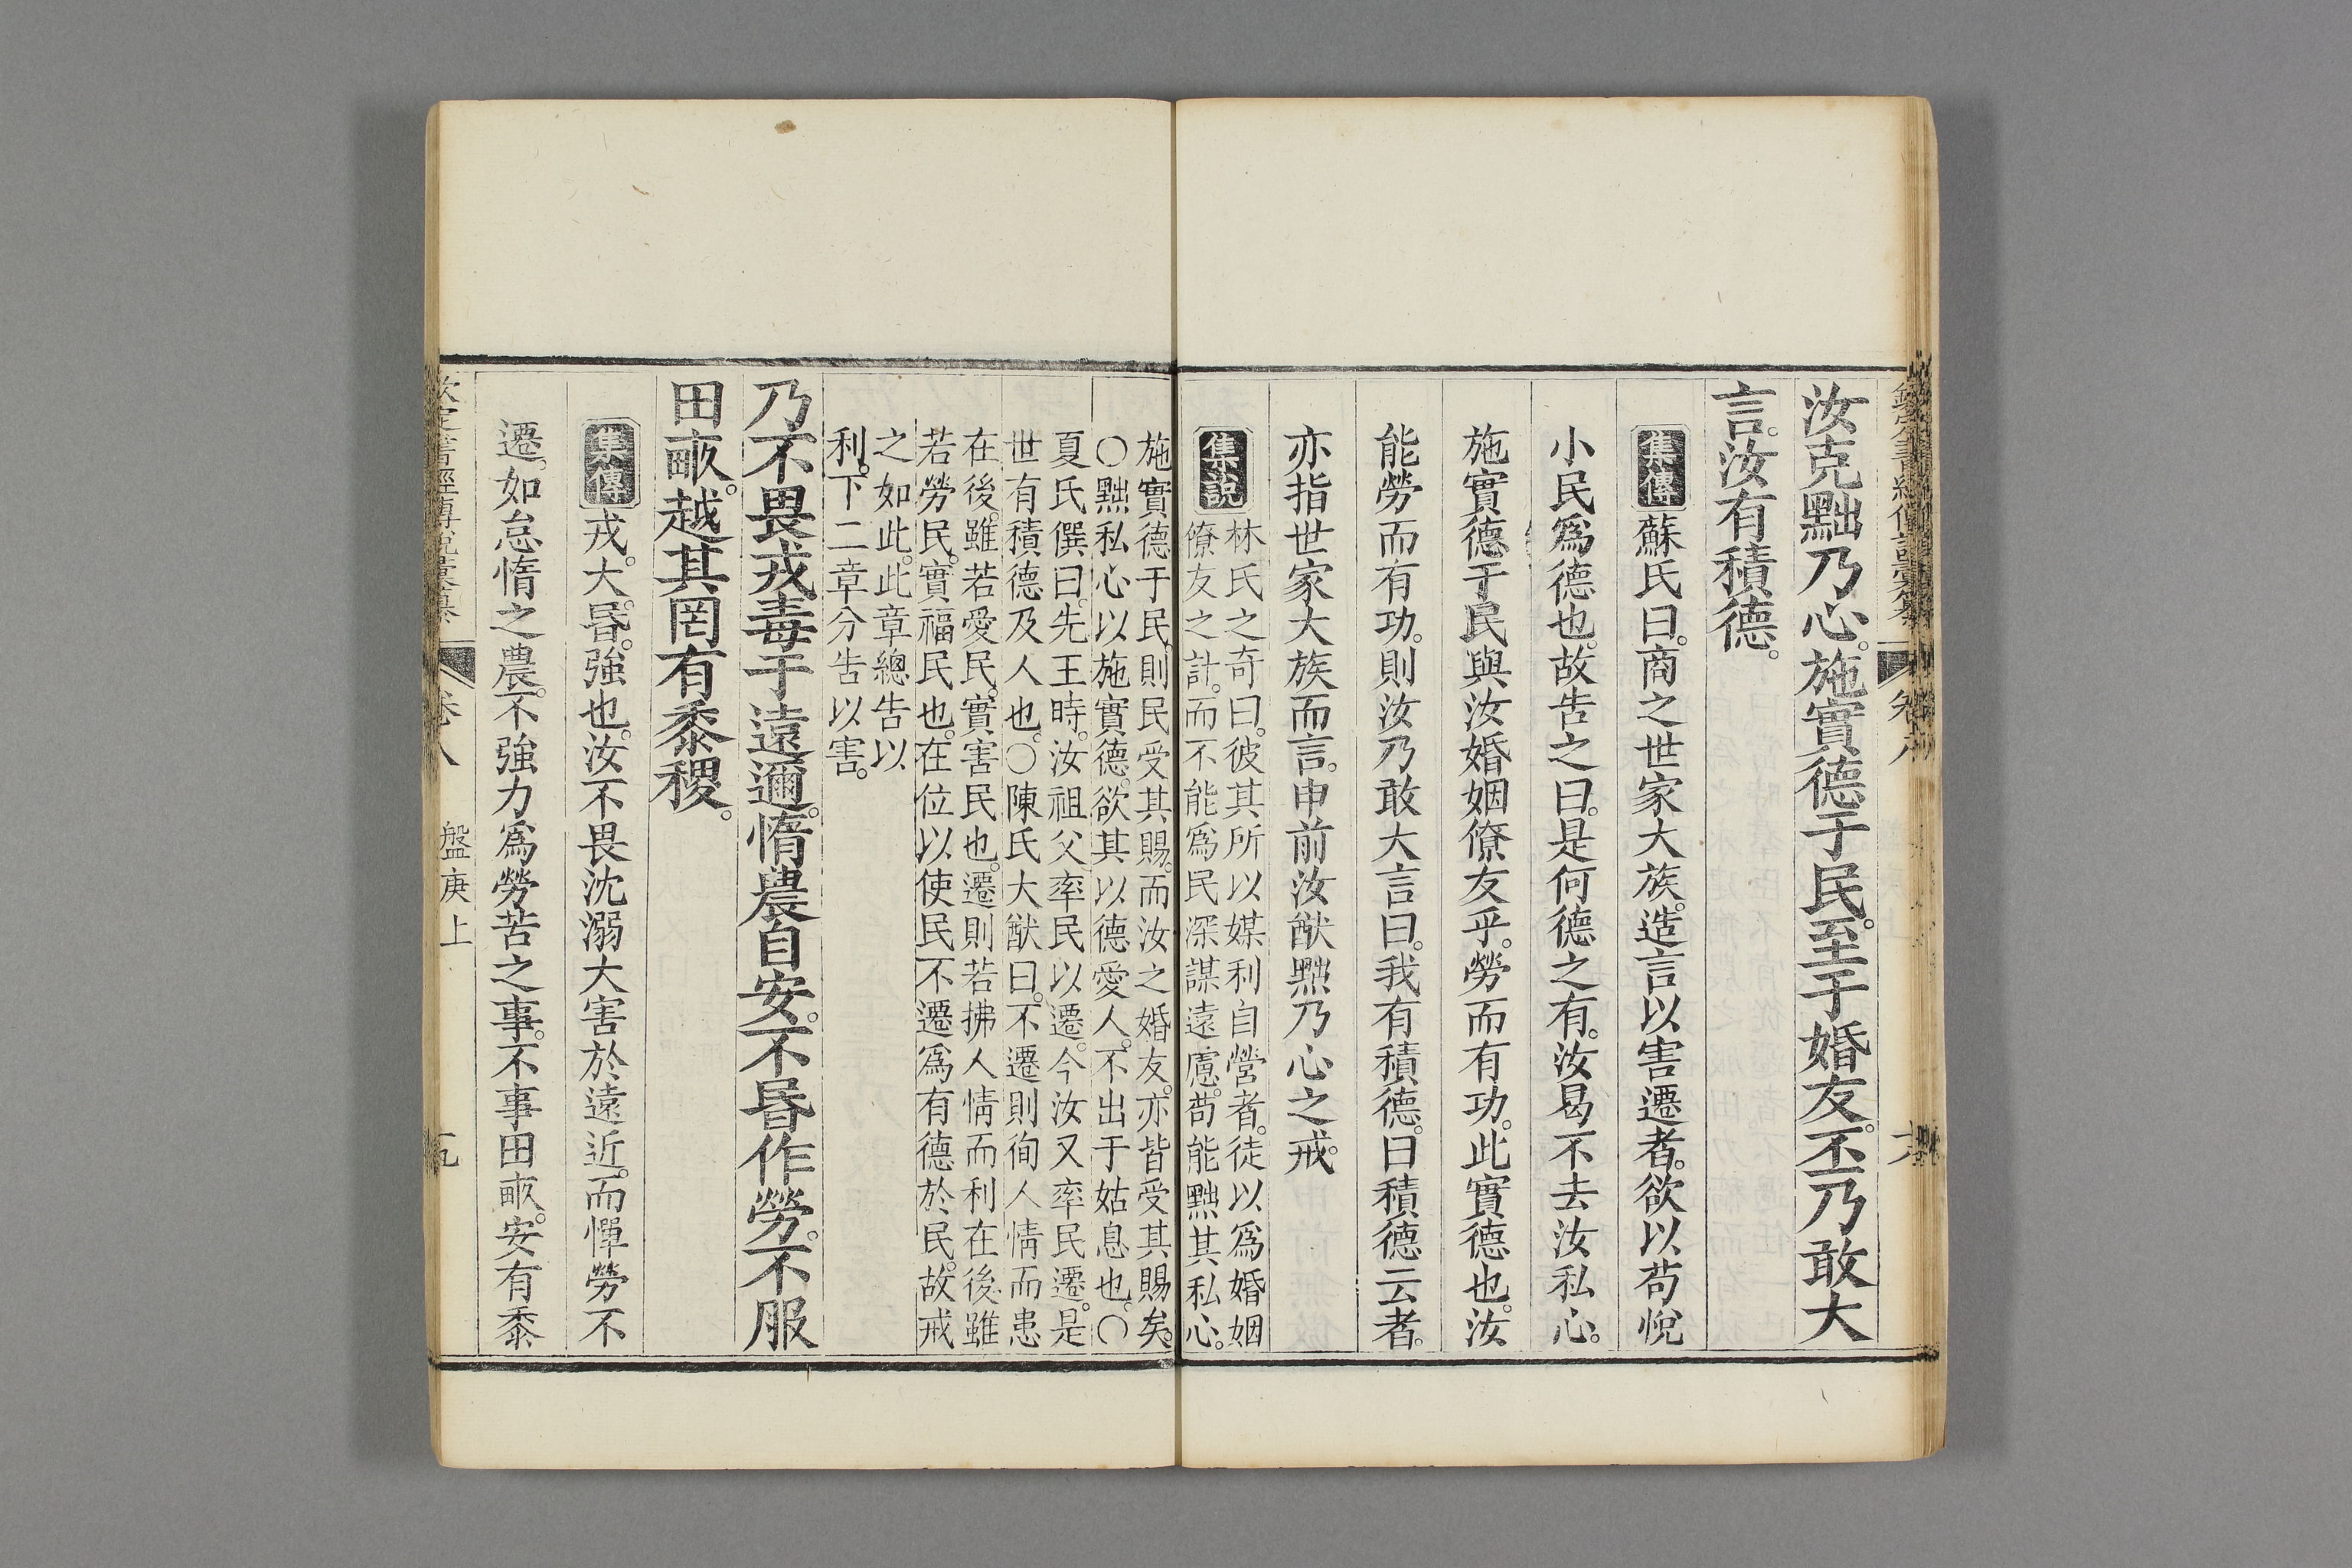 汝克黜乃心。施實德于民。至于婚友。丕乃敢大
言。汝有積德。
集傳 蘇氏曰。商之世家大族。造言以害遷者。欲以苟悅
小民爲德也。故告之曰。是何德之有。汝曷不去汝私心。
施實德于民。與汝婚姻僚友乎。勞而有功。此實德也。汝
能勞而有功。則汝乃敢大言曰。我有積德。曰積德云者。
亦指世家大族而言。申前汝猷黜乃心之戒。
集說 林氏之奇曰。彼其所以媒利自營者。徒以爲婚姻
僚友之計。而不能爲民深謀遠慮。苟能黜其私心。
施實德于民。則民受其賜。而汝之婚友。亦皆受其賜矣。
○黜私心以施實德。欲其以德愛人。不出于姑息也。○
夏氏僎曰。先王時。汝祖父率民以遷。今汝又率民遷。是
世有積德及人也。○陳氏大猷曰。不遷則徇人情而患
在後。雖若愛民。實害民也。遷則若拂人情而利在後。雖
若勞民。實福民也。在位以使民不遷爲有德於民。故戒
之如此。此章總告以
利。下二章分告以害。
乃不畏戎毒于遠邇。惰農自安。不昬作勞。不服
田畝。越其罔有黍稷。
集傳 戎。大。昬。強也。汝不畏沈溺大害於遠近。而憚勞不
遷。如怠惰之農。不強力爲勞苦之事。不事田畝。安有黍
卷八 盤庚上